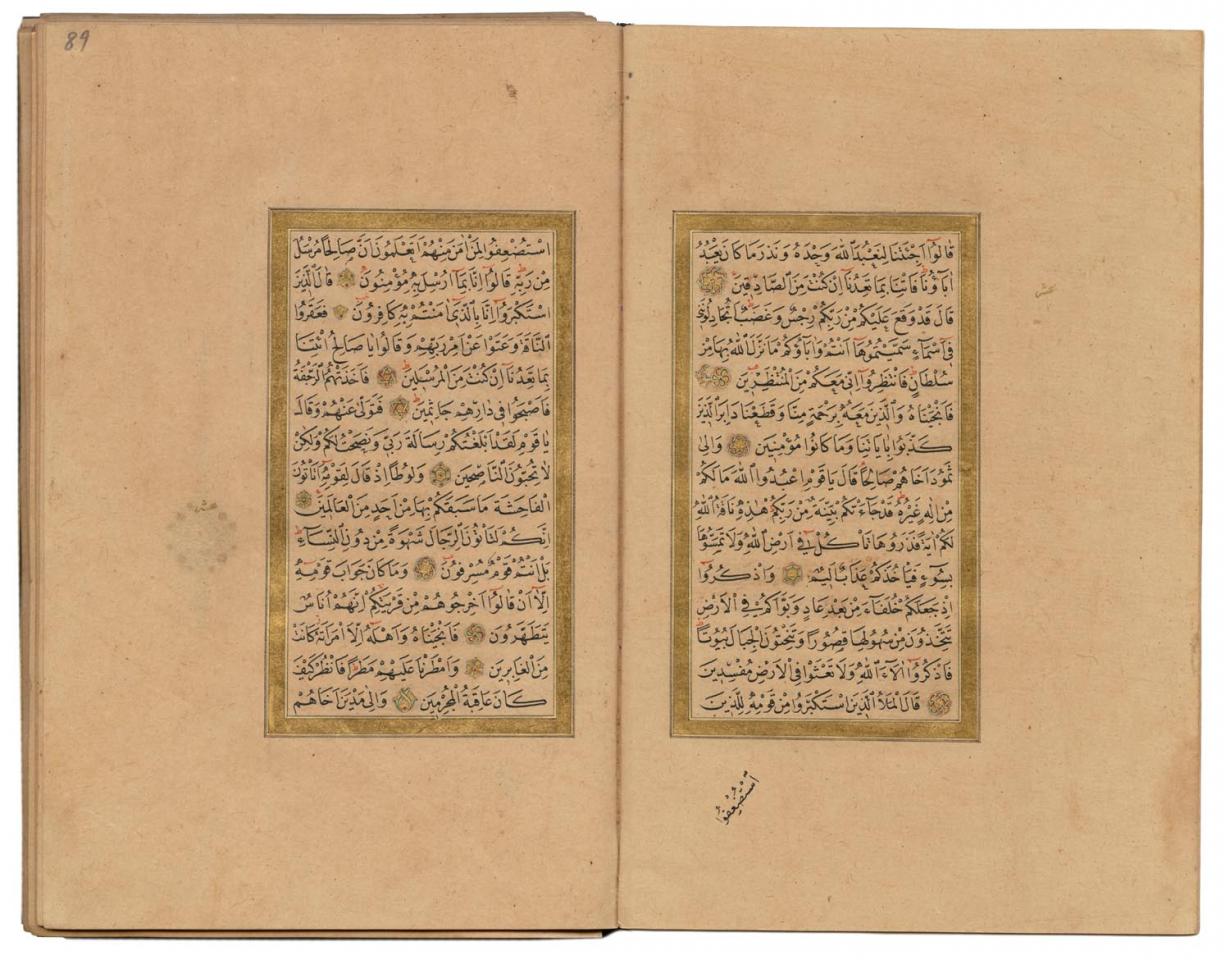 قَالُوا اَجِئْتَنَا لِنَعْبُدَ اللّٰهَ وَحْدَهُ وَنَذَرَ مَا كَانَ يَعْبُدُ
اٰبَاؤُنَا فَاْتِنَا بِمَا تَعِدُنَا اِنْ كُنْتَ مِنَ الصَّادِقِينَ
قَالَ قَدْ وَقَعَ عَلَيْكُمْ مِنْ رَبِّكُمْ رِجْسٌ وَغَضَبٌ اَتُجَادِلُونَنِي
فِي اَسْمَاءٍ سَمَّيْتُمُوهَا اَنْتُمْ وَاٰبَاؤُكُمْ مَا نَزَّلَ اللّٰهُ بِهَا مِنْ
سُلْطَانٍ فَانْتَظِرُوا اِنِّي مَعَكُمْ مِنَ الْمُنْتَظِرِينَ
فَاَنْجَيْنَاهُ وَالَّذِينَ مَعَهُ بِرَحْمَةٍ مِنَّا وَقَطَعْنَا دَابِرَ الَّذِينَ
كَذَّبُوا بِاٰيَاتِنَا وَمَا كَانُوا مُؤْمِنِينَ وَاِلٰى
ثَمُودَ اَخَاهُمْ صَالِحًا قَالَ يَا قَوْمِ اعْبُدُوا اللّٰهَ مَا لَكُمْ
مِنْ اِلٰهٍ غَيْرُهُ قَدْ جَاءَتْكُمْ بَيِّنَةٌ مِنْ رَبِّكُمْ هٰذِهِ نَاقَةُ اللّٰهِ
لَكُمْ اٰيَةً فَذَرُوهَا تَاْكُلْ فِي اَرْضِ اللّٰهِ وَلَا تَمَسُّوهَا
بِسُوءٍ فَيَاْخُذَكُمْ عَذَابٌ اَلِيمٌ وَاذْكُرُوا
اِذْ جَعَلَكُمْ خُلَفَاءَ مِنْ بَعْدِ عَادٍ وَبَوَّاَكُمْ فِي الْاَرْضِ
تَتَّخِذُونَ مِنْ سُهُولِهَا قُصُورًا وَتَنْحِتُونَ الْجِبَالَ بُيُوتًا
فَاذْكُرُوا اٰلَاءَ اللّٰهِ وَلَا تَعْثَوْا فِي الْاَرْضِ مُفْسِدِينَ
قَالَ الْمَلَاُ الَّذِينَ اسْتَكْبَرُوا مِنْ قَوْمِهِ لِلَّذِينَ
اسْتُضْعِفُوا
عشر
89
اسْتُضْعِفُوا لِمَنْ اٰمَنَ مِنْهُمْ اَتَعْلَمُونَ اَنَّ صَالِحًا مُرْسَلٌ
مِنْ رَبِّهِ قَالُوا اِنَّا بِمَا اُرْسِلَ بِهِ مُؤْمِنُونَ قَالَ الَّذِينَ
اسْتَكْبَرُوا اِنَّا بِالَّذِي اٰمَنْتُمْ بِهِ كَافِرُونَ فَعَقَرُوا
النَّاقَةَ وَعَتَوْا عَنْ اَمْرِ رَبِّهِمْ وَقَالُوا يَا صَالِحُ ائْتِنَا
بِمَا تَعِدُنَا اِنْ كُنْتَ مِنَ الْمُرْسَلِينَ فَاَخَذَتْهُمُ الرَّجْفَةُ
فَاَصْبَحُوا فِي دَارِهِمْ جَاثِمِينَ فَتَوَلّٰى عَنْهُمْ وَقَالَ
يَا قَوْمِ لَقَدْ اَبْلَغْتُكُمْ رِسَالَةَ رَبِّي وَنَصَحْتُ لَكُمْ وَلٰكِنْ
لَا تُحِبُّونَ النَّاصِحِينَ وَلُوطًا اِذْ قَالَ لِقَوْمِهِ اَتَاْتُونَ
الْفَاحِشَةَ مَا سَبَقَكُمْ بِهَا مِنْ اَحَدٍ مِنَ الْعَالَمِينَ
اِنَّكُمْ لَتَاْتُونَ الرِّجَالَ شَهْوَةً مِنْ دُونِ النِّسَاءِ
بَلْ اَنْتُمْ قَوْمٌ مُسْرِفُونَ وَمَا كَانَ جَوَابَ قَوْمِهِ
اِلَّا اَنْ قَالُوا اَخْرِجُوهُمْ مِنْ قَرْيَتِكُمْ اِنَّهُمْ اُنَاسٌ
يَتَطَهَّرُونَ فَاَنْجَيْنَاهُ وَاَهْلَهُ اِلَّا امْرَاَتَهُ كَانَتْ
مِنَ الْغَابِرِينَ وَاَمْطَرْنَا عَلَيْهِمْ مَطَرًا فَانْظُرْ كَيْفَ
كَانَ عَاقِبَةُ الْمُجْرِمِينَ وَاِلٰى مَدْيَنَ اَخَاهُمْ
عشر